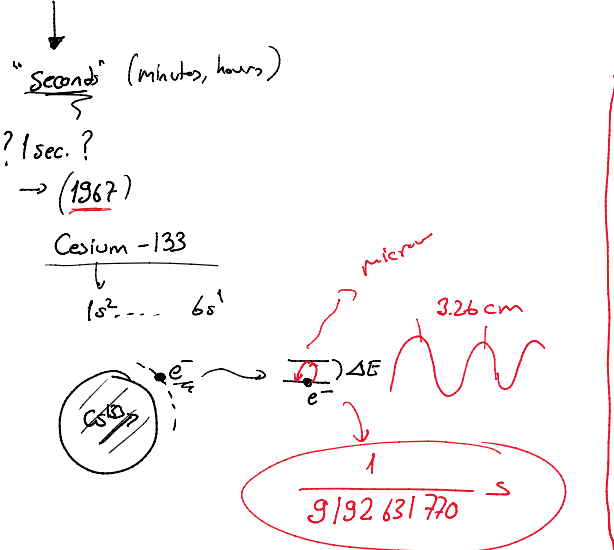 "Seconds" (minutes, hours)
? 1 sec. ?
→ (1967)
Cesium - 133
1s² ..... 6s¹
micron
3.26 cm
e⁻
ΔE
e⁻
Cs¹³³
1
9192 631 770 s